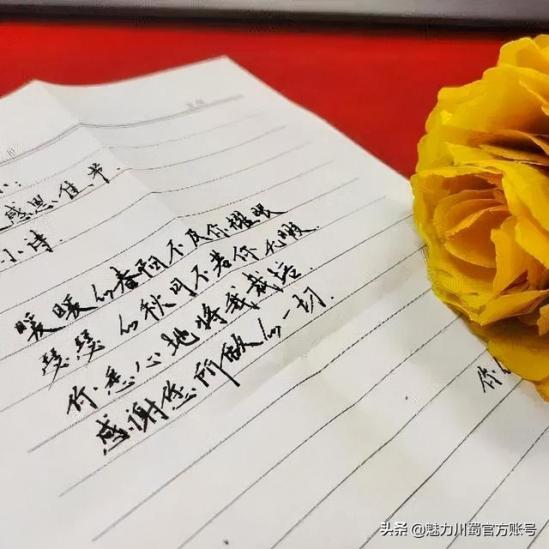 感恩佳节
小诗
暖暖的春阳不及你耀眼
瑟瑟的秋月不若你无暇
你悉心地将我栽培
感谢您所做的一切
你
头条 @魅力川蜀官方账号